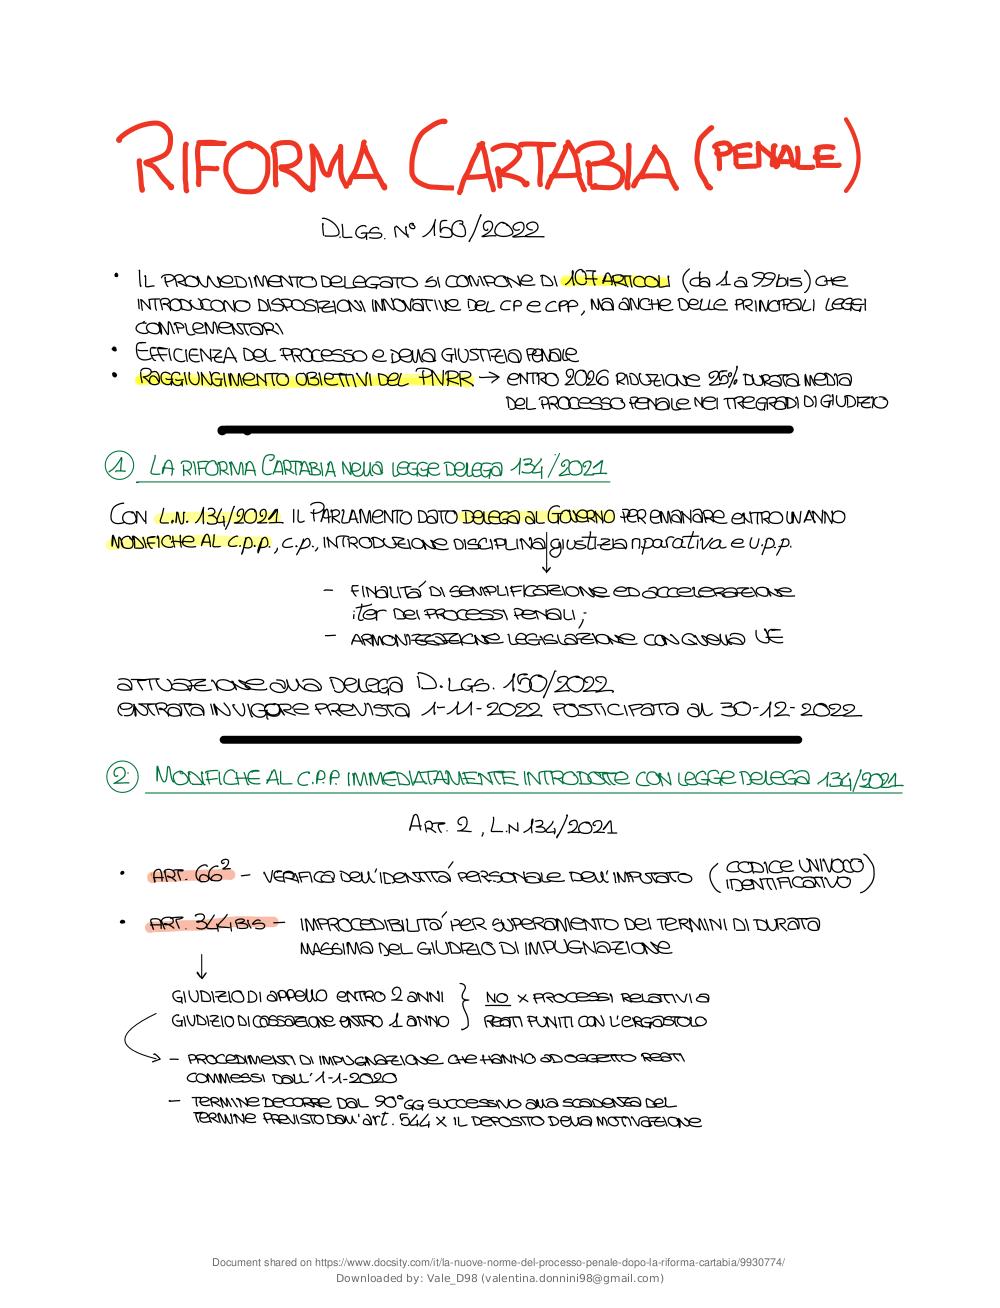 RIFORMA CARTABIA (PENALE)
D.LGS. N° 150/2022
• IL PROVVEDIMENTO DELEGATO SI COMPONE DI 107 ARTICOLI (da 1 a 99bis) CHE
INTRODUCONO DISPOSIZIONI INNOVATIVE DEL CP e CPP, MA ANCHE DELLE PRINCIPALI LEGGI
COMPLEMENTARI
• EFFICIENZA DEL PROCESSO E DELLA GIUSTIZIA PENALE
• RAGGIUNGIMENTO OBIETTIVI DEL PNRR → ENTRO 2026 RIDUZIONE 25% DURATA MEDIA
DEL PROCESSO PENALE NEI TRE GRADI DI GIUDIZIO
1 LA RIFORMA CARTABIA NELLA LEGGE DELEGA 134/2021
CON L.N. 134/2021 IL PARLAMENTO DATO DELEGA AL GOVERNO PER EMANARE ENTRO UN ANNO
MODIFICHE AL C.P.P., C.P., INTRODUZIONE DISCIPLINA giustizia riparativa e U.P.P.
- FINALITÀ DI SEMPLIFICAZIONE ED ACCELERAZIONE
iter DEI PROCESSI PENALI;
- ARMONIZZAZIONE LEGISLAZIONE CON QUELLA UE
ATTUAZIONE ALLA DELEGA D.LGS. 150/2022
ENTRATA IN VIGORE PREVISTA 1-11-2022 POSTICIPATA AL 30-12-2022
2 MODIFICHE AL C.P.P. IMMEDIATAMENTE INTRODOTTE CON LEGGE DELEGA 134/2021
ART. 2, L.N 134/2021
• ART. 66² - VERIFICA DELL'IDENTITÀ PERSONALE DELL'IMPUTATO (CODICE UNIVOCO
IDENTIFICATIVO)
• ART. 344 BIS - IMPROCEDIBILITÀ PER SUPERAMENTO DEI TERMINI DI DURATA
MASSIMA DEL GIUDIZIO DI IMPUGNAZIONE
GIUDIZIO DI APPELLO ENTRO 2 ANNI } NO x PROCESSI RELATIVI A
GIUDIZIO DI CASSAZIONE ENTRO 1 ANNO } REATI PUNITI CON L'ERGASTOLO
- PROCEDIMENTI DI IMPUGNAZIONE CHE HANNO AD OGGETTO REATI
COMMESSI DALL'1-1-2020
- TERMINE DECORRE DAL 90° GG SUCCESSIVO ALLA SCADENZA DEL
TERMINE PREVISTO DALL'art. 544 x IL DEPOSITO DELLA MOTIVAZIONE
Document shared on https://www.docsity.com/it/la-nuove-norme-del-processo-penale-dopo-la-riforma-cartabia/9930774/
Downloaded by: Vale_D98 (valentina.donnini98@gmail.com)